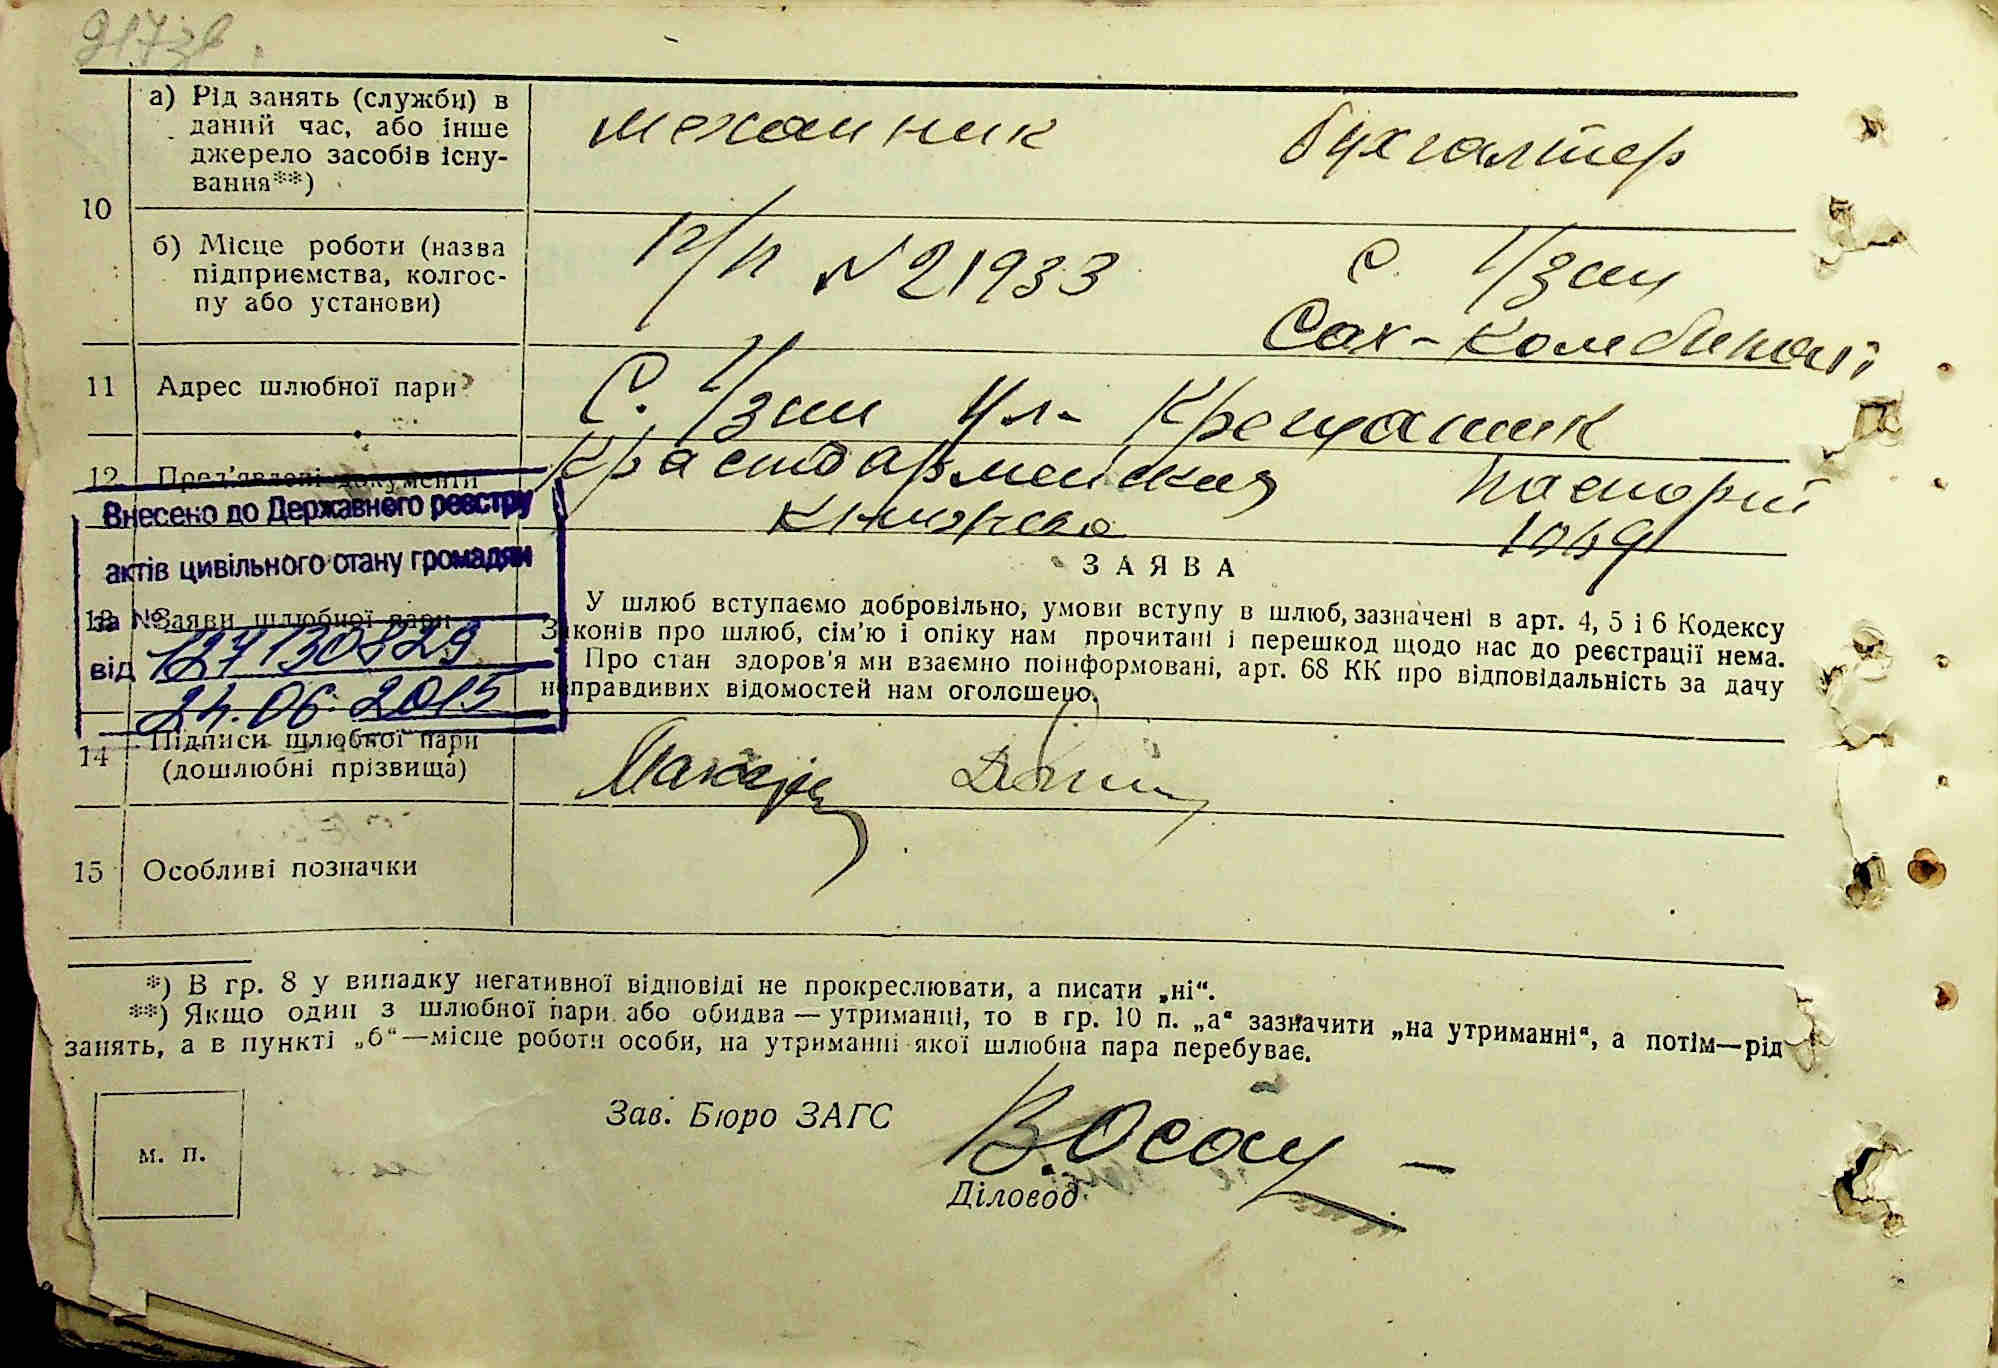 917зв.
а) Рід занять (служби) в
даний час, або інше
джерело засобів існу-
вання**)
механник
бухгалтер
10
б) Місце роботи (назва
підприємства, колгос-
пу або установи)
п/п №21933
с. Узин
Сах-комбинат
11 Адрес шлюбної пари
С. Узин ул-Крещатик
12 Пред'явлені документи
Красноармейская
книжка
паспорт
Внесено до Державного реєстру
актів цивільного стану громадян
за №
127130829
від
24.06.2015
13 Заяви шлюбної пари
ЗАЯВА
У шлюб вступаємо добровільно, умови вступу в шлюб, зазначені в арт. 4, 5 і 6 Кодексу
Законів про шлюб, сім'ю і опіку нам прочитані і перешкод щодо нас до реєстрації нема.
Про стан здоров'я ми взаємно поінформовані, арт. 68 КК про відповідальність за дачу
неправдивих відомостей нам оголошено.
14 Підписи шлюбної пари
(дошлюбні прізвища)
15 Особливі позначки
*) В гр. 8 у випадку негативної відповіді не прокреслювати, а писати „ні“.
**) Якщо один з шлюбної пари або обидва — утриманці, то в гр. 10 п. „а“ зазначити „на утриманні“, а потім—рід
занять, а в пункті „б“—місце роботи особи, на утриманні якої шлюбна пара перебуває.
м. п.
Зав. Бюро ЗАГС
Діловод